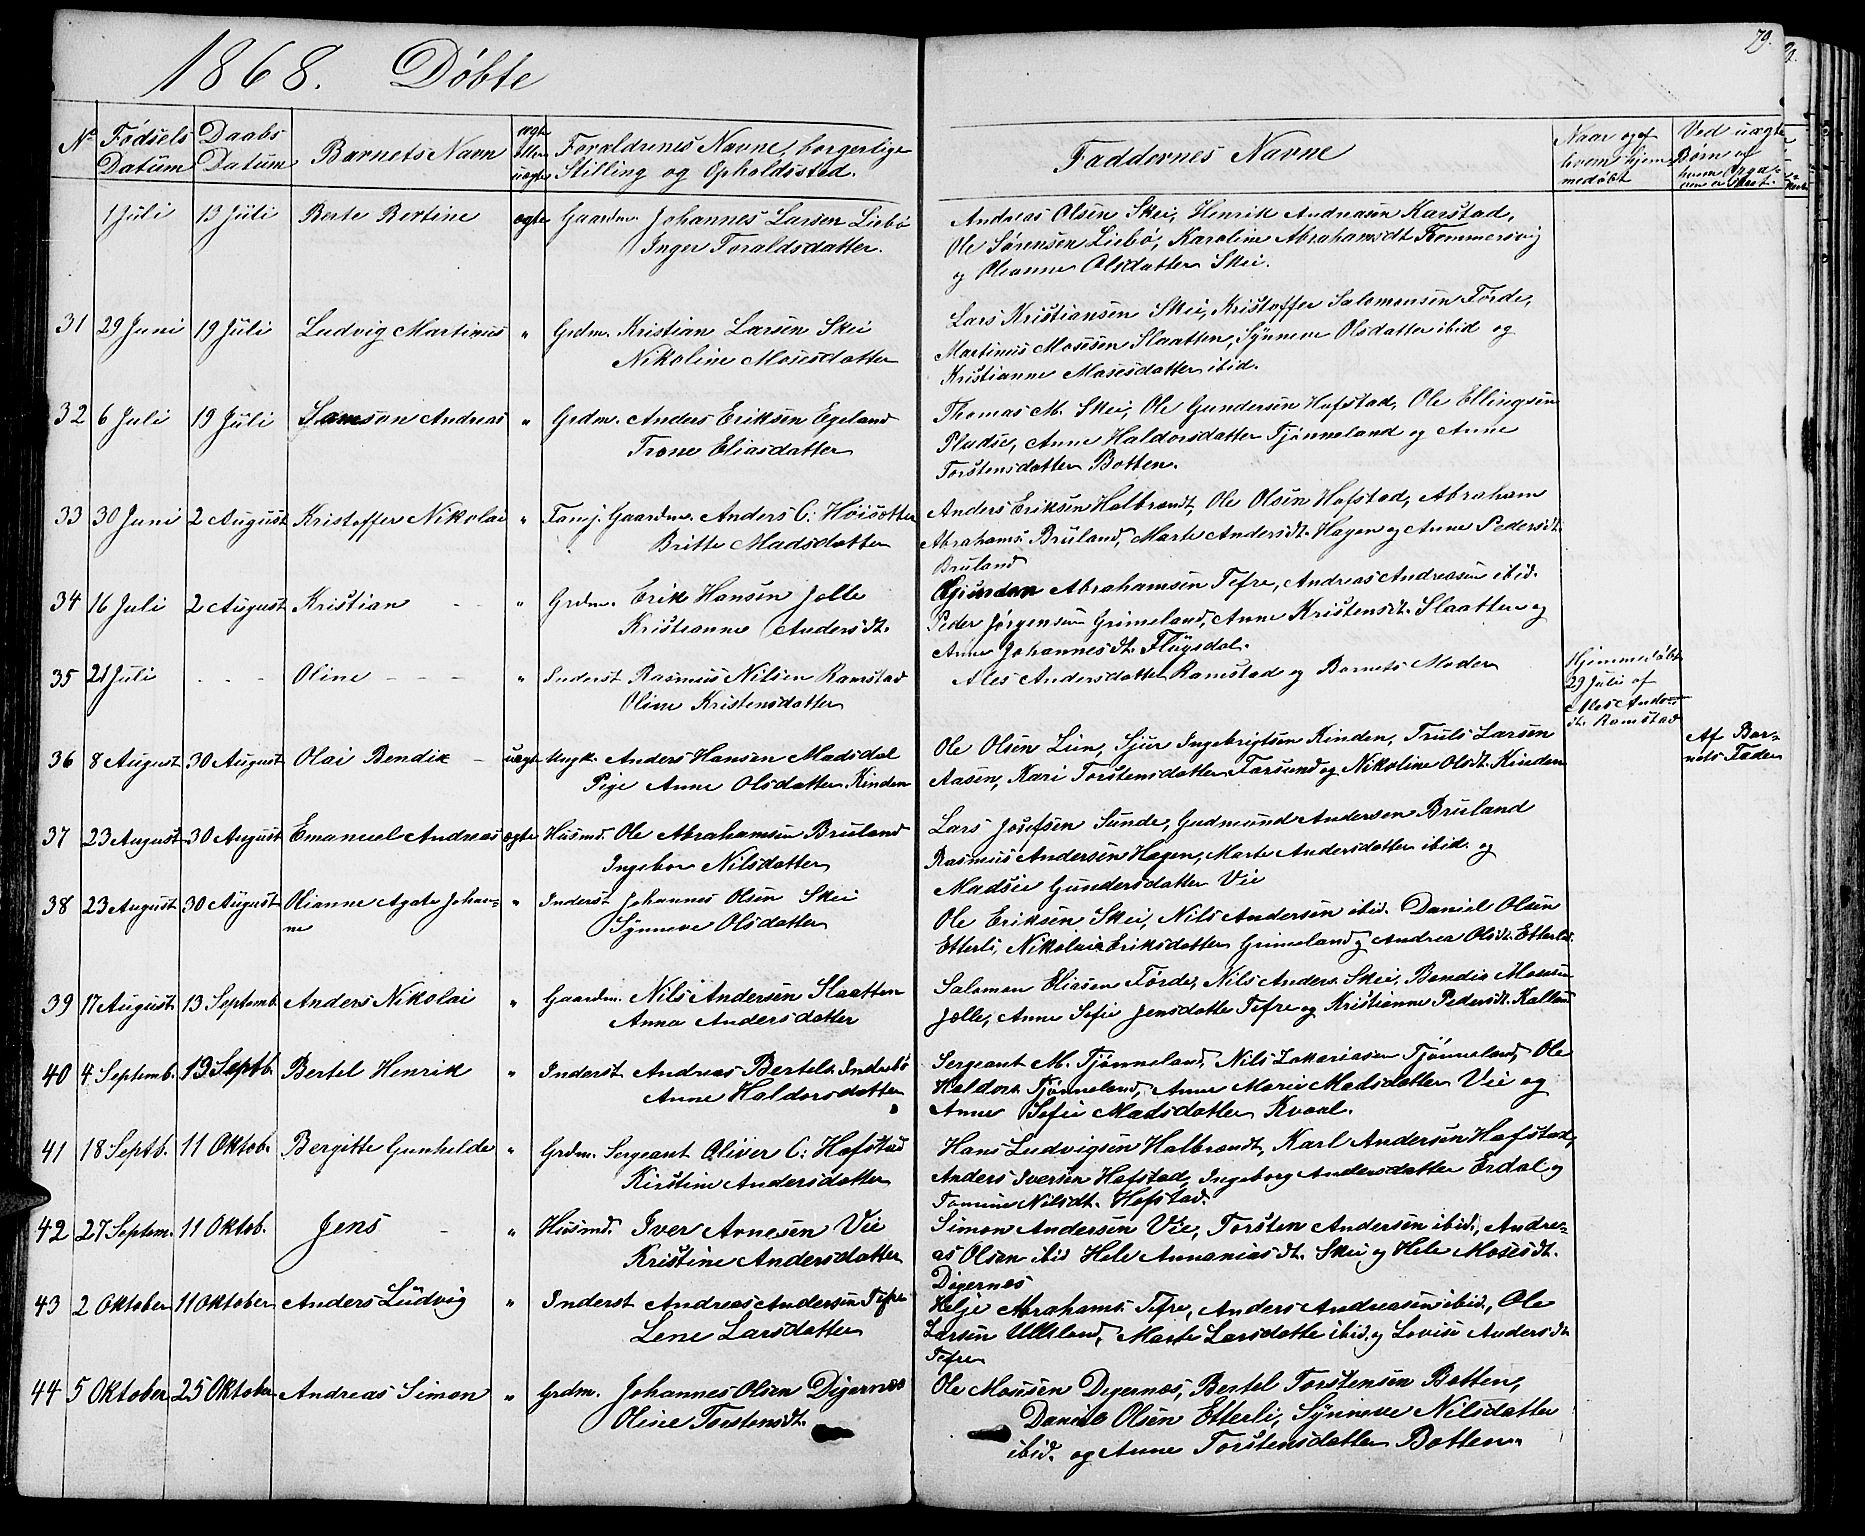 1868. Døbte
79.
No
Fødsels Datum
Daabs Datum
Barnets Navn
ægte eller uægte
Forældrenes Navne, borgerlige
Stilling og Opholdssted.
Faddernes Navne
Naar og af
hvem hjem-
medøbt
Ved uægte
Børn af
1 Juli 13 Juli Berte Bertine ægte Gaardm. Johannes Larsen Liebø
Inger Toraldsdatter.
Andreas Olsen Skei, Henrik Andreasen Karstad,
Ole Sørensen Liebø, Karoline Abrahamsdt.
og Oleanne Olsdatter Skei.
31 29 Juni 19 Juli Ludvig Martinus " Grdm. Kristian Larsen Skei
Nikoline Mosesdatter
Lars Kristiansen Skei, Kristoffer Salomonsen Førde,
Martinus Mosesen Slaatten, Synneve Olsdatter ibid og
Kristianne Mosesdatter ibid.
32 6 Juli 19 Juli Samson Andreas " Grdm. Anders Eriksen Egeland
Trone Eliasdatter
Thomas M. Skei, Ole Gundersen Hafstad, Ole Ellingsen
Pladse, Anne Haldorsdatter Tjønneland og Anne
Torstensdatter Botten.
33 30 Juni 2 August Kristoffer Nikolai " Gaardm. Anders C: Høisæter
Britte Madsdatter
Anders Eriksen Halbrendt, Ole Olsen Hafstad, Abraham
Abrahams. Bruland, Marte Andersdt. Hagen og Anne Pedersdt.
Bruland
34 16 Juli 2 August Kristian - - " Grdm. Erik Hansen Jølle
Kristianne Andersdt.
Abrahamsen Tefre, Andreas Andreasen ibid.
Peder Jørgensen Grimeland, Anne Kristensdt. Slaatten og
Anne Johannesdt. Fløgsdal.
35 21 Juli - - - Oline - - - " Inderst Rasmus Nilsen Ramstad
Oline Kristensdatter
Ales Andersdatter Ramstad og Barnets Moder
Hjemmedøbt
29 Juli af
Ales Anders-
dt. Ramstad
36 8 August 30 August Olai Bendik - uægte Ungk. Anders Hansen Madsdal
Pige Anne Olsdatter Kinden
Ole Olsen Lien, Sjur Ingebrigtsen Kinden, Truls Larsen
Aasen, Kari Torstensdatter Farsund og Nikoline Olsdt. Kinden
Af Bar-
nets Fader
37 23 August 30 August Emanuel Andreas ægte Husmd. Ole Abrahamsen Bruland
Ingebor Nilsdatter
Lars Josefsen Sunde, Gudmund Andersen Bruland
Rasmus Andersen Hagen, Marte Andersdatter ibid. og
Madsie Gundersdatter Vie
38 23 August 30 August Olianne Agate Johan-
ne " Inderst Johannes Olsen Skei
Synneve Olsdatter
Ole Eriksen Skei, Nils Andersen ibid. Daniel Olsen
Etterli, Nikolaia Eriksdatter Grimeland og Andrea Olsdt. Etterli.
39 17 August 13 Septemb. Anders Nikolai " Gaardm. Nils Andersen Slaatten
Anna Andersdatter
Salomon Eliasen Førde, Nils Anders. Skei, Bendix Mosesen
Jølle, Anne Sofie Jensdatter Tefre og Kristianne Pedersdt. Kalland
40 4 Septemb. 13 Septb. Bertel Henrik " Inderst Andreas Bertels. Indrebø
Anne Haldorsdatter
Sergeant M. Tjønneland, Nils Zakariasen Tjønneland, Ole
Haldors. Tjønneland, Anne Marie Madsdatter Vie og
Anne Sofie Madsdatter Kvaal.
41 18 Septb. 11 Oktob. Bergitte Gunhilde " Grdm. Sergeant Oliver C: Hafstad
Kirstine Andersdatter
Hans Ludvigsen Halbrendt, Karl Andersen Hafstad,
Anders Iversen Hafstad, Ingeborg Andersdatter Erdal og
Tomine Nilsdt. Hafstad.
42 27 Septem. 11 Oktob. Jens - " Husmd. Iver Arnesen Vie
Kristine Andersdatter
Simon Andersen Vie, Torsten Andersen ibid., Andre-
as Olsen ibid Hele Annaniasdt. Skei og Hele Mosesdt.
Digernes
43 2 Oktober 11 Oktober Anders Ludvig " Inderst Andreas Andersen Tefre
Lene Larsdatter
Helje Abrahams. Tefre, Anders Andreasen ibid., Ole
Larsen Ulleland, Marte Larsdatter ibid. og Lovise Andersdt.
Tefre
44 5 Oktober 25 Oktober Andreas Simon " Grdm. Johannes Olsen Digernes
Oline Torstensdt.
Ole Mosesen Degernes, Bertel Torstensen Botten,
Daniel Olsen Etterli, Synneve Nilsdatter
ibid. og Anne Torstensdatter Botten.